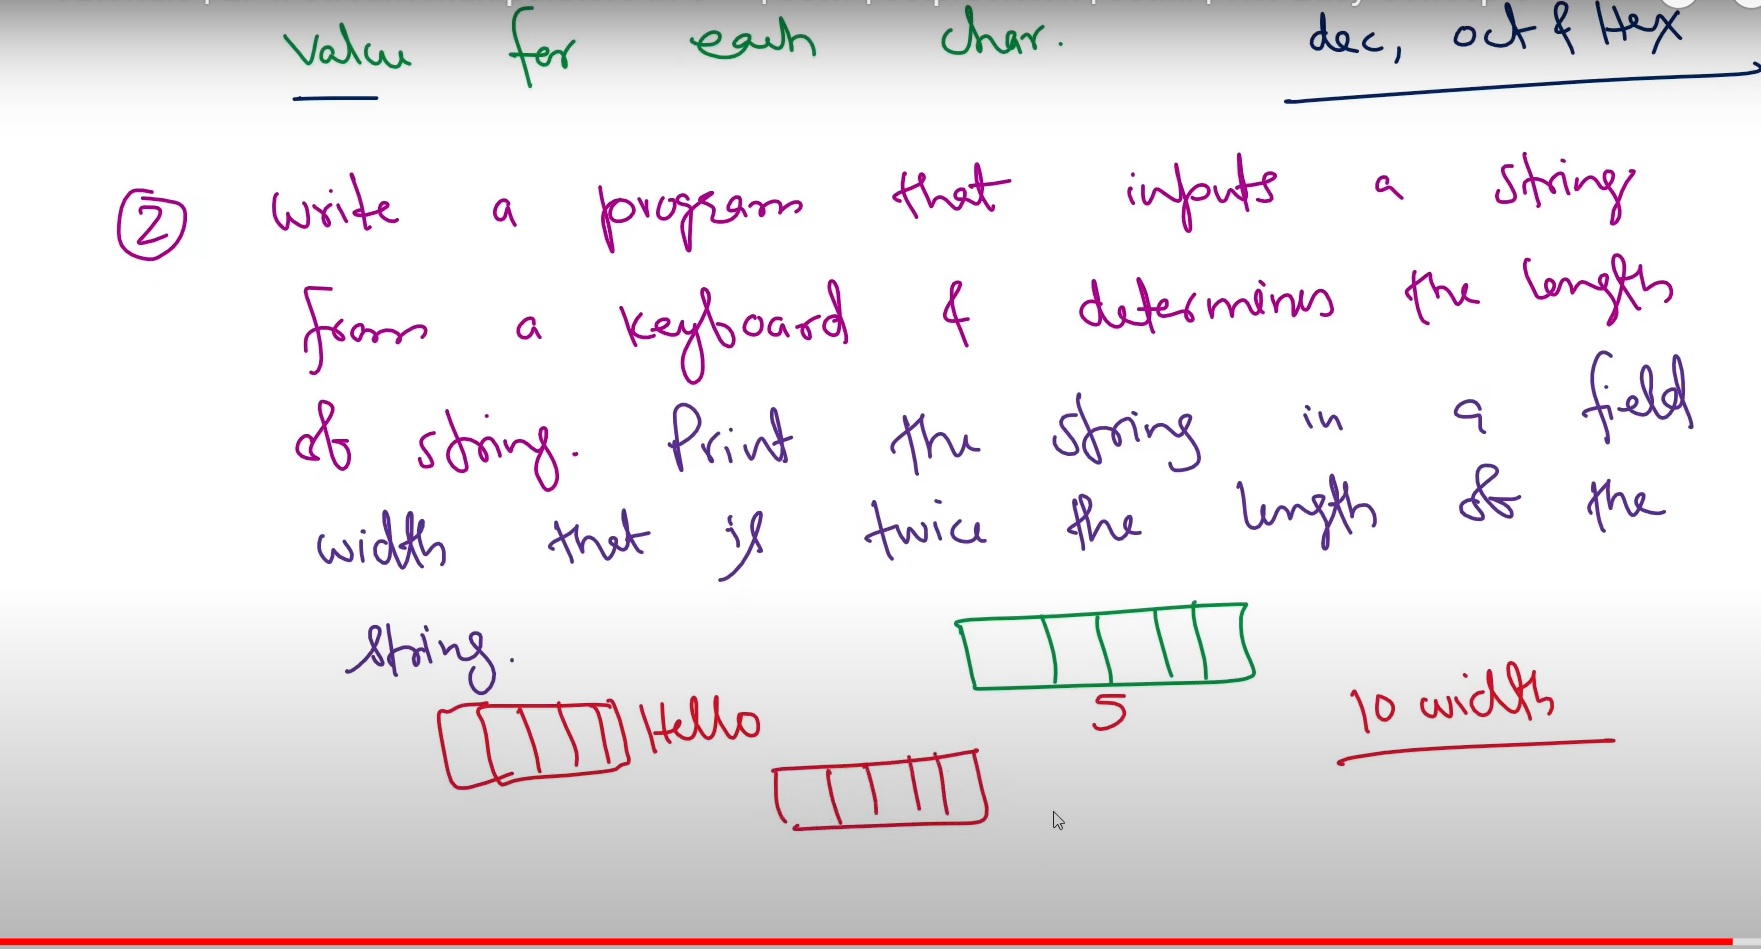 value for each char. dec, oct & Hex
② Write a program that inputs a string
from a keyboard & determines the length
of string. Print the string in a field
width that is twice the length of the
string.
5
10 width
Hello